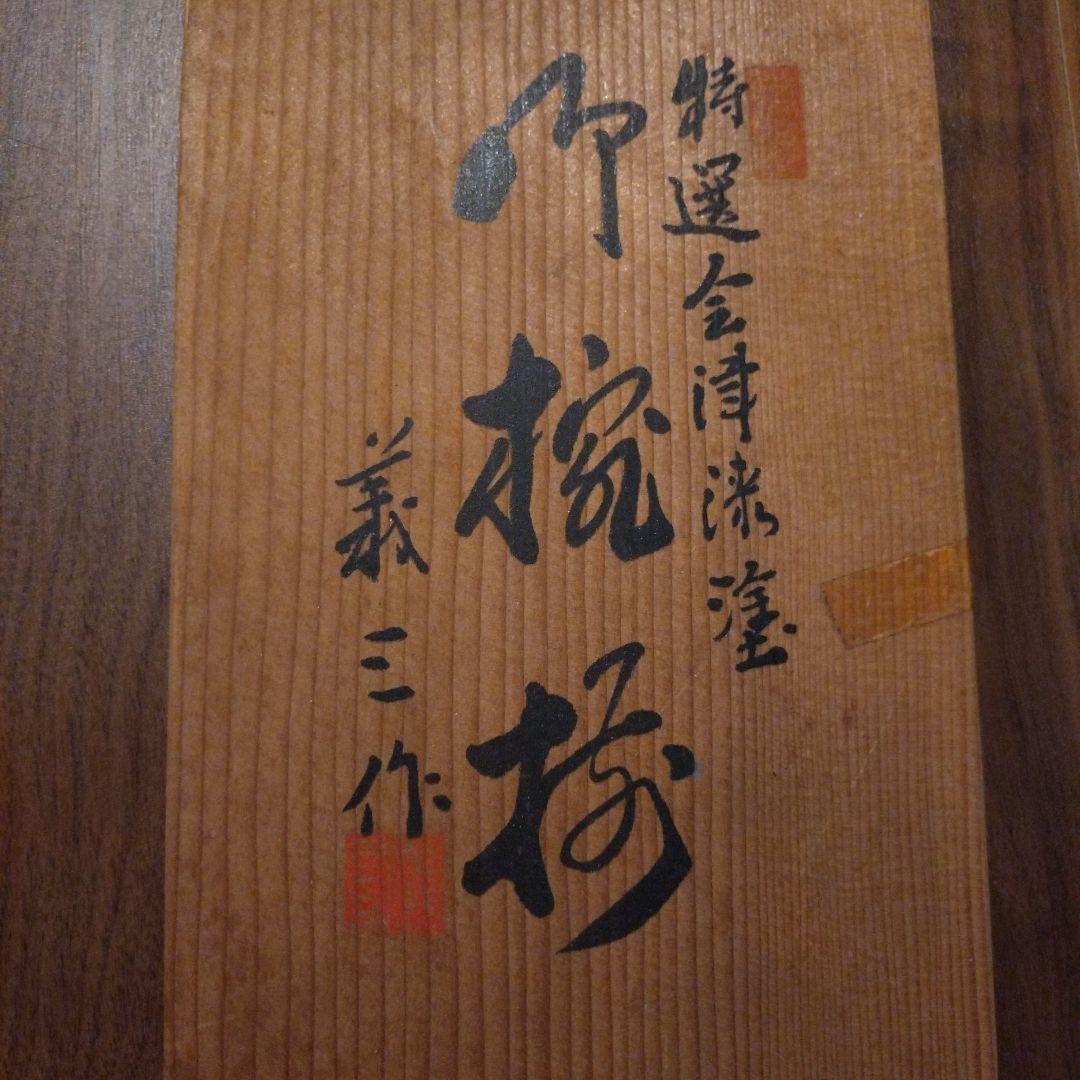 特選会津漆塗
御椀揃
義三作